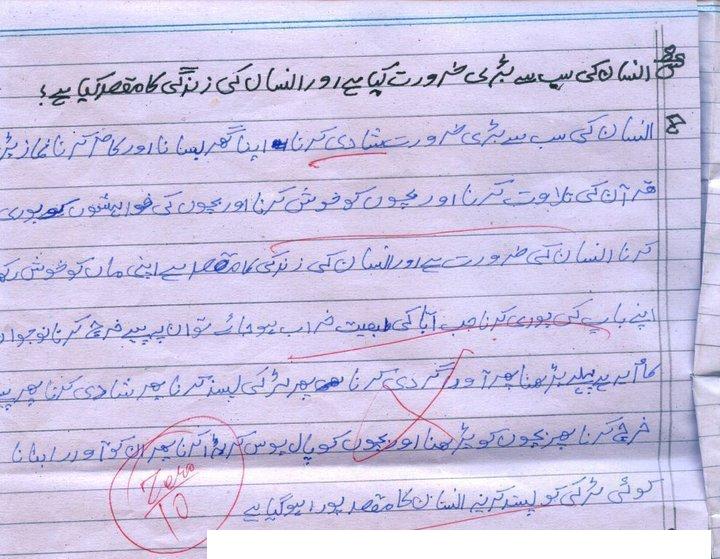 انسان کی سب سے بڑی ضرورت کیا ہے اور انسان کی زندگی کا مقصد کیا ہے؟
انسان کی سب سے بڑی ضرورت شادی کرنا اپنا گھر بسانا اور کام کرنا نماز پڑ
قرآن کی تلاوت کرنا اور بچوں کو خوش کرنا اور بچوں کی خواہشوں کو پوری
کرنا انسان کی ضرورت ہے اور انسان کی زندگی کا مقصد ہے اپنی ماں کو خوش رکھ
اپنے باپ کی پوری کرنا جب آبا کی طبعیت خراب ہو جائے تو ان پر پیسے خرچ کرنا نوجوان
کا پہلے پڑھنا پھر آوارگردی کرنا پھر لڑکی پسند کرنا پھر شادی کرنا پھر پی
خرچ کرنا پھر بچوں کو پڑھنا اور بچوں کو پال پوس کر بڑا کرنا پھر ان کو آوارا بنانا
کوئی لڑکی کو پسند کرنے انسان کا مقصد پورا ہو گیا ہے
Zero
10